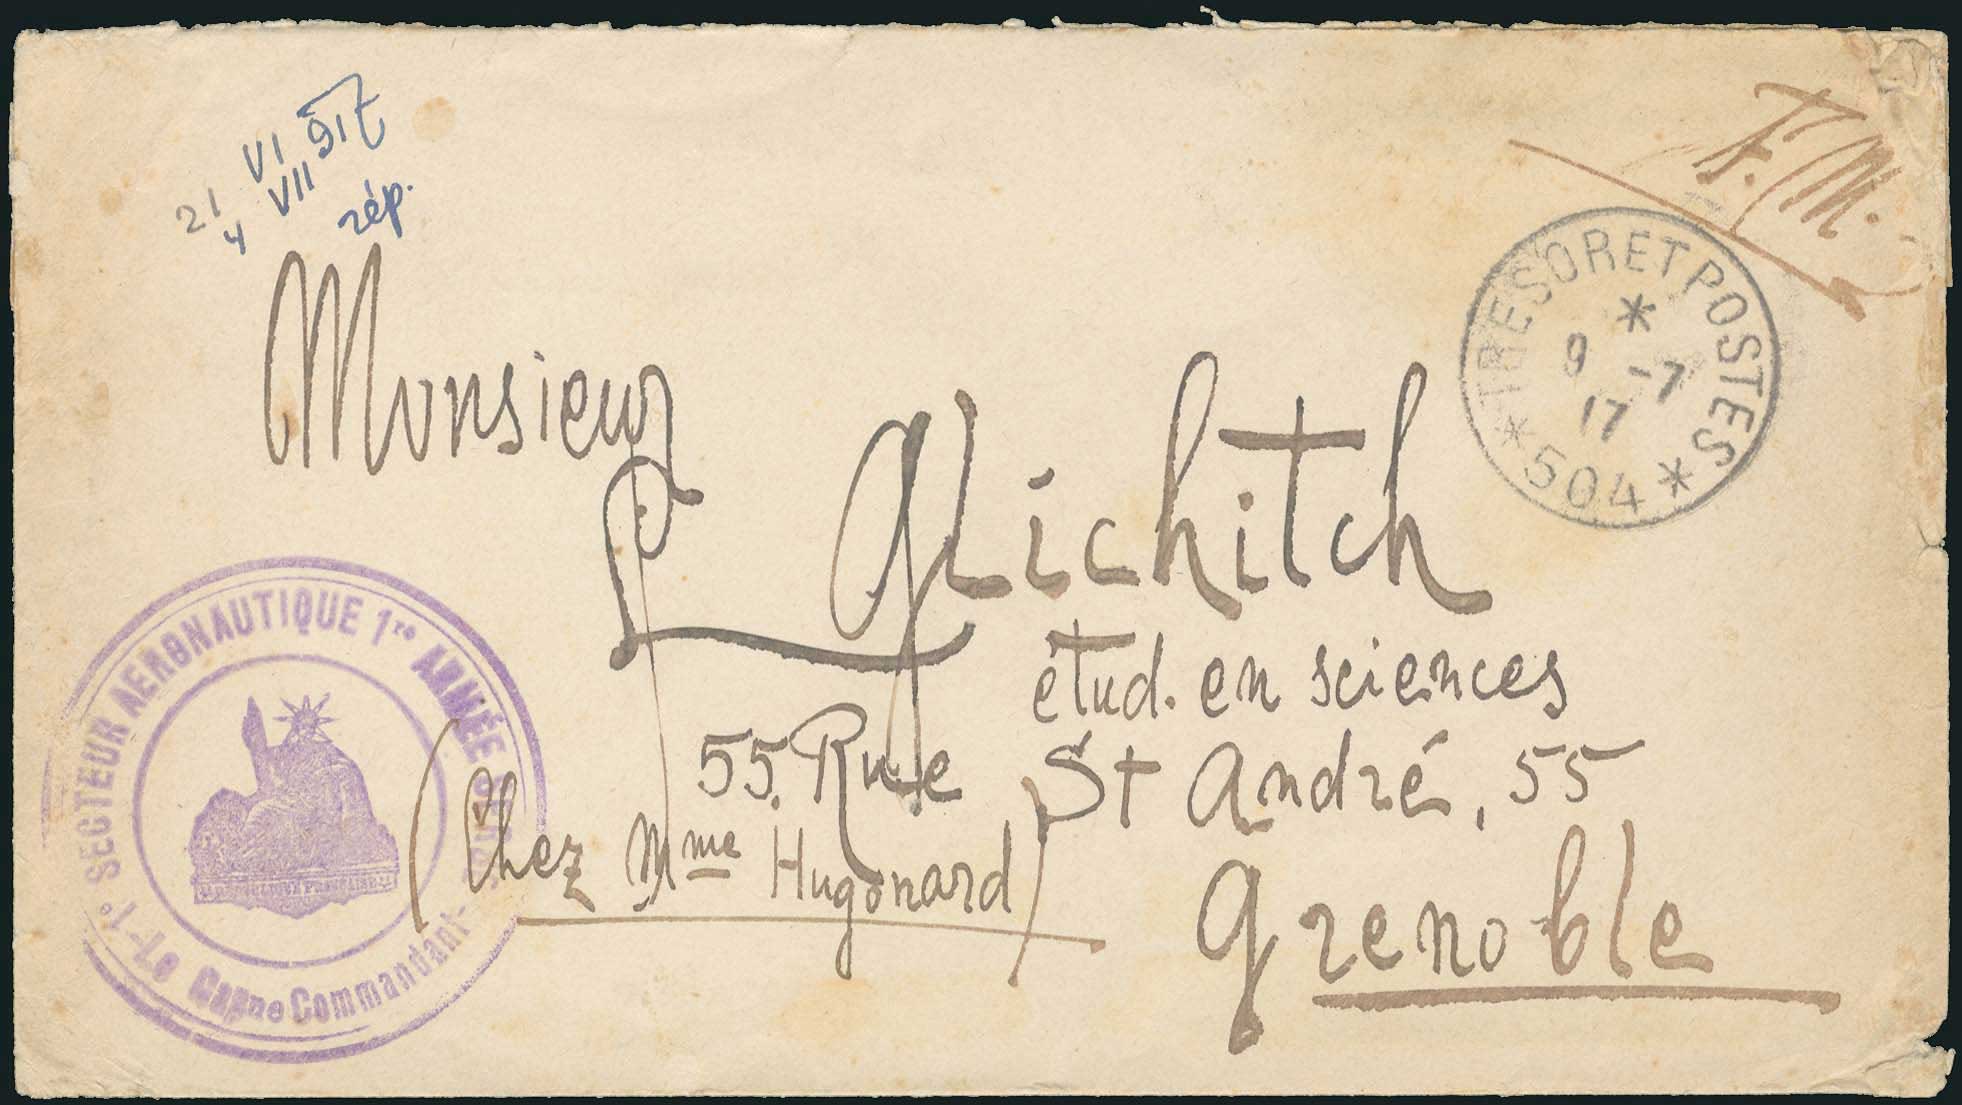 F.M.
VI 917
21 VII
4 rép.
TRESOR ET POSTES
*
9 -7
17
* 504 *
Monsieur
L Glichitch
étud. en sciences
55. Rue St André, 55
(Chez Mme Hugonard)
Grenoble
1° SECTEUR AERONAUTIQUE 1re ARMÉE
-Le Commandant-